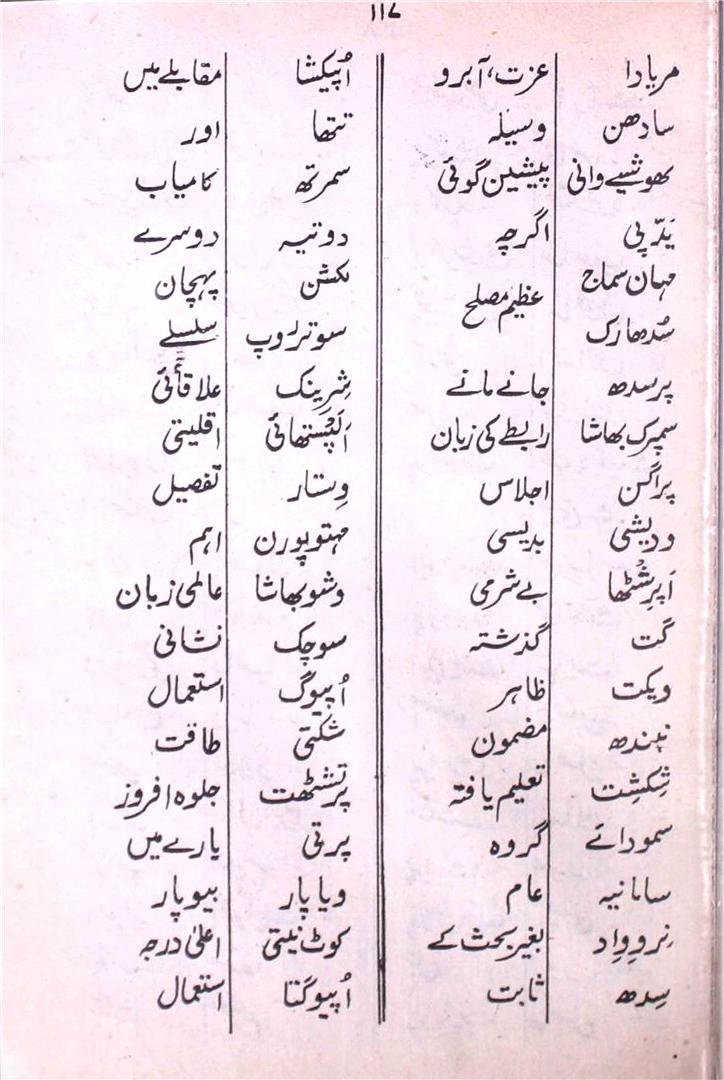 ۱۱۷
مریادا عزت، آبرو
سادھن وسیلہ
بھوشیے وانی پیشین گوئی
یَدّپی اگرچہ
مہان سماج
سُدھارک عظیم مصلح
پرسدھ جانے مانے
سمپرک بھاشا رابطے کی زبان
پراگن اجلاس
ودیشی بدیسی
اَپرِشٹھا بے شرمی
گت گذشتہ
ویکت ظاہر
نبندھ مضمون
شِکشِت تعلیم یافتہ
سمودائے گروہ
سامانیہ عام
نروِواد بغیر بحث کے
سِدھ ثابت
اُپیکشا مقابلے میں
تتھا اور
سمرتھ کامیاب
دوتیہ دوسرے
لکشن پہچان
سوتر روپ سلسلے
شرینک علاقائی
اَلپستھائی اقلیتی
وِستار تفصیل
مہتوپورن اہم
وشو بھاشا عالمی زبان
سوچک نشانی
اُپیوگ استعمال
شکتی طاقت
پرتشٹھت جلوہ افروز
پرتی بارے میں
ویاپار بیوپار
کوٹ نیتی اعلیٰ درجہ
اُپیوگتا استعمال